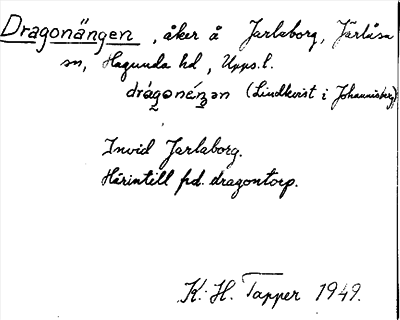 Dragonängen, åker å Jarlaborg, Järlåsa
sn, Hagunda hd, Upps.l.
drágonéŋən (Lindkvist i Johannisberg)
Invid Jarlaborg.
Härintill fd. dragontorp.
K. H. Tapper 1949.